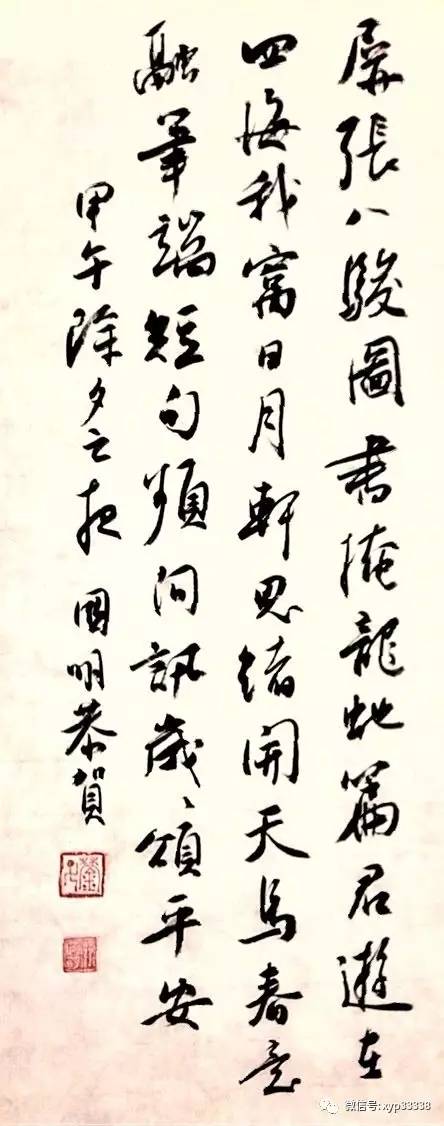 屏張八駿圖書掩龍蛇篇君遊在
四海我寓日月軒思緒開天馬春意
融筆端短句頻問訊歲〻頌平安
甲午除夕之夜 國明恭賀
微信号:xyp33338